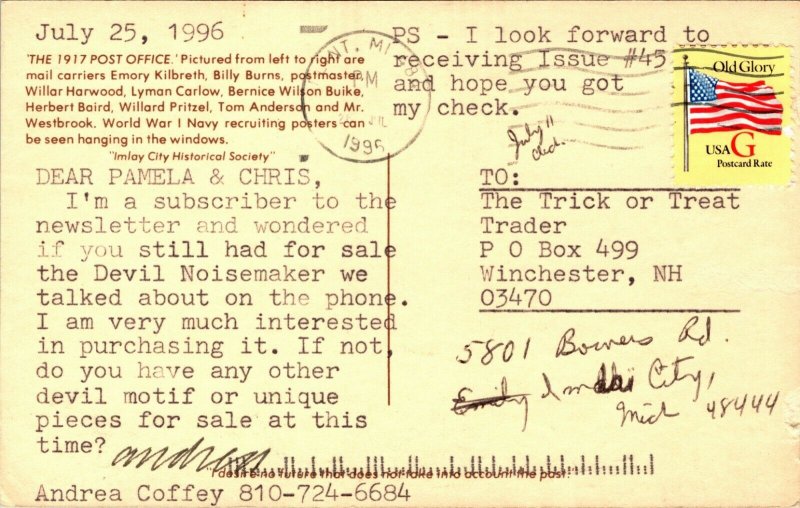 July 25, 1996
'THE 1917 POST OFFICE.' Pictured from left to right are
mail carriers Emory Kilbreth, Billy Burns, postmaster,
Willar Harwood, Lyman Carlow, Bernice Wilson Buike,
Herbert Baird, Willard Pritzel, Tom Anderson and Mr.
Westbrook. World War I Navy recruiting posters can
be seen hanging in the windows.
"Imlay City Historical Society"
DEAR PAMELA & CHRIS,
I'm a subscriber to the
newsletter and wondered
if you still had for sale
the Devil Noisemaker we
talked about on the phone.
I am very much interested
in purchasing it. If not,
do you have any other
devil motif or unique
pieces for sale at this
time?
Andrea
"I desire no future that does not take into account the past."
Andrea Coffey 810-724-6684
NT, MI
1996
PS - I look forward to
receiving Issue #45
and hope you got
my check.
July 11
Old Glory
USA G
Postcard Rate
TO:
The Trick or Treat
Trader
P O Box 499
Winchester, NH
03470
5801 Bowers Rd.
Emily City,
Mich 48444